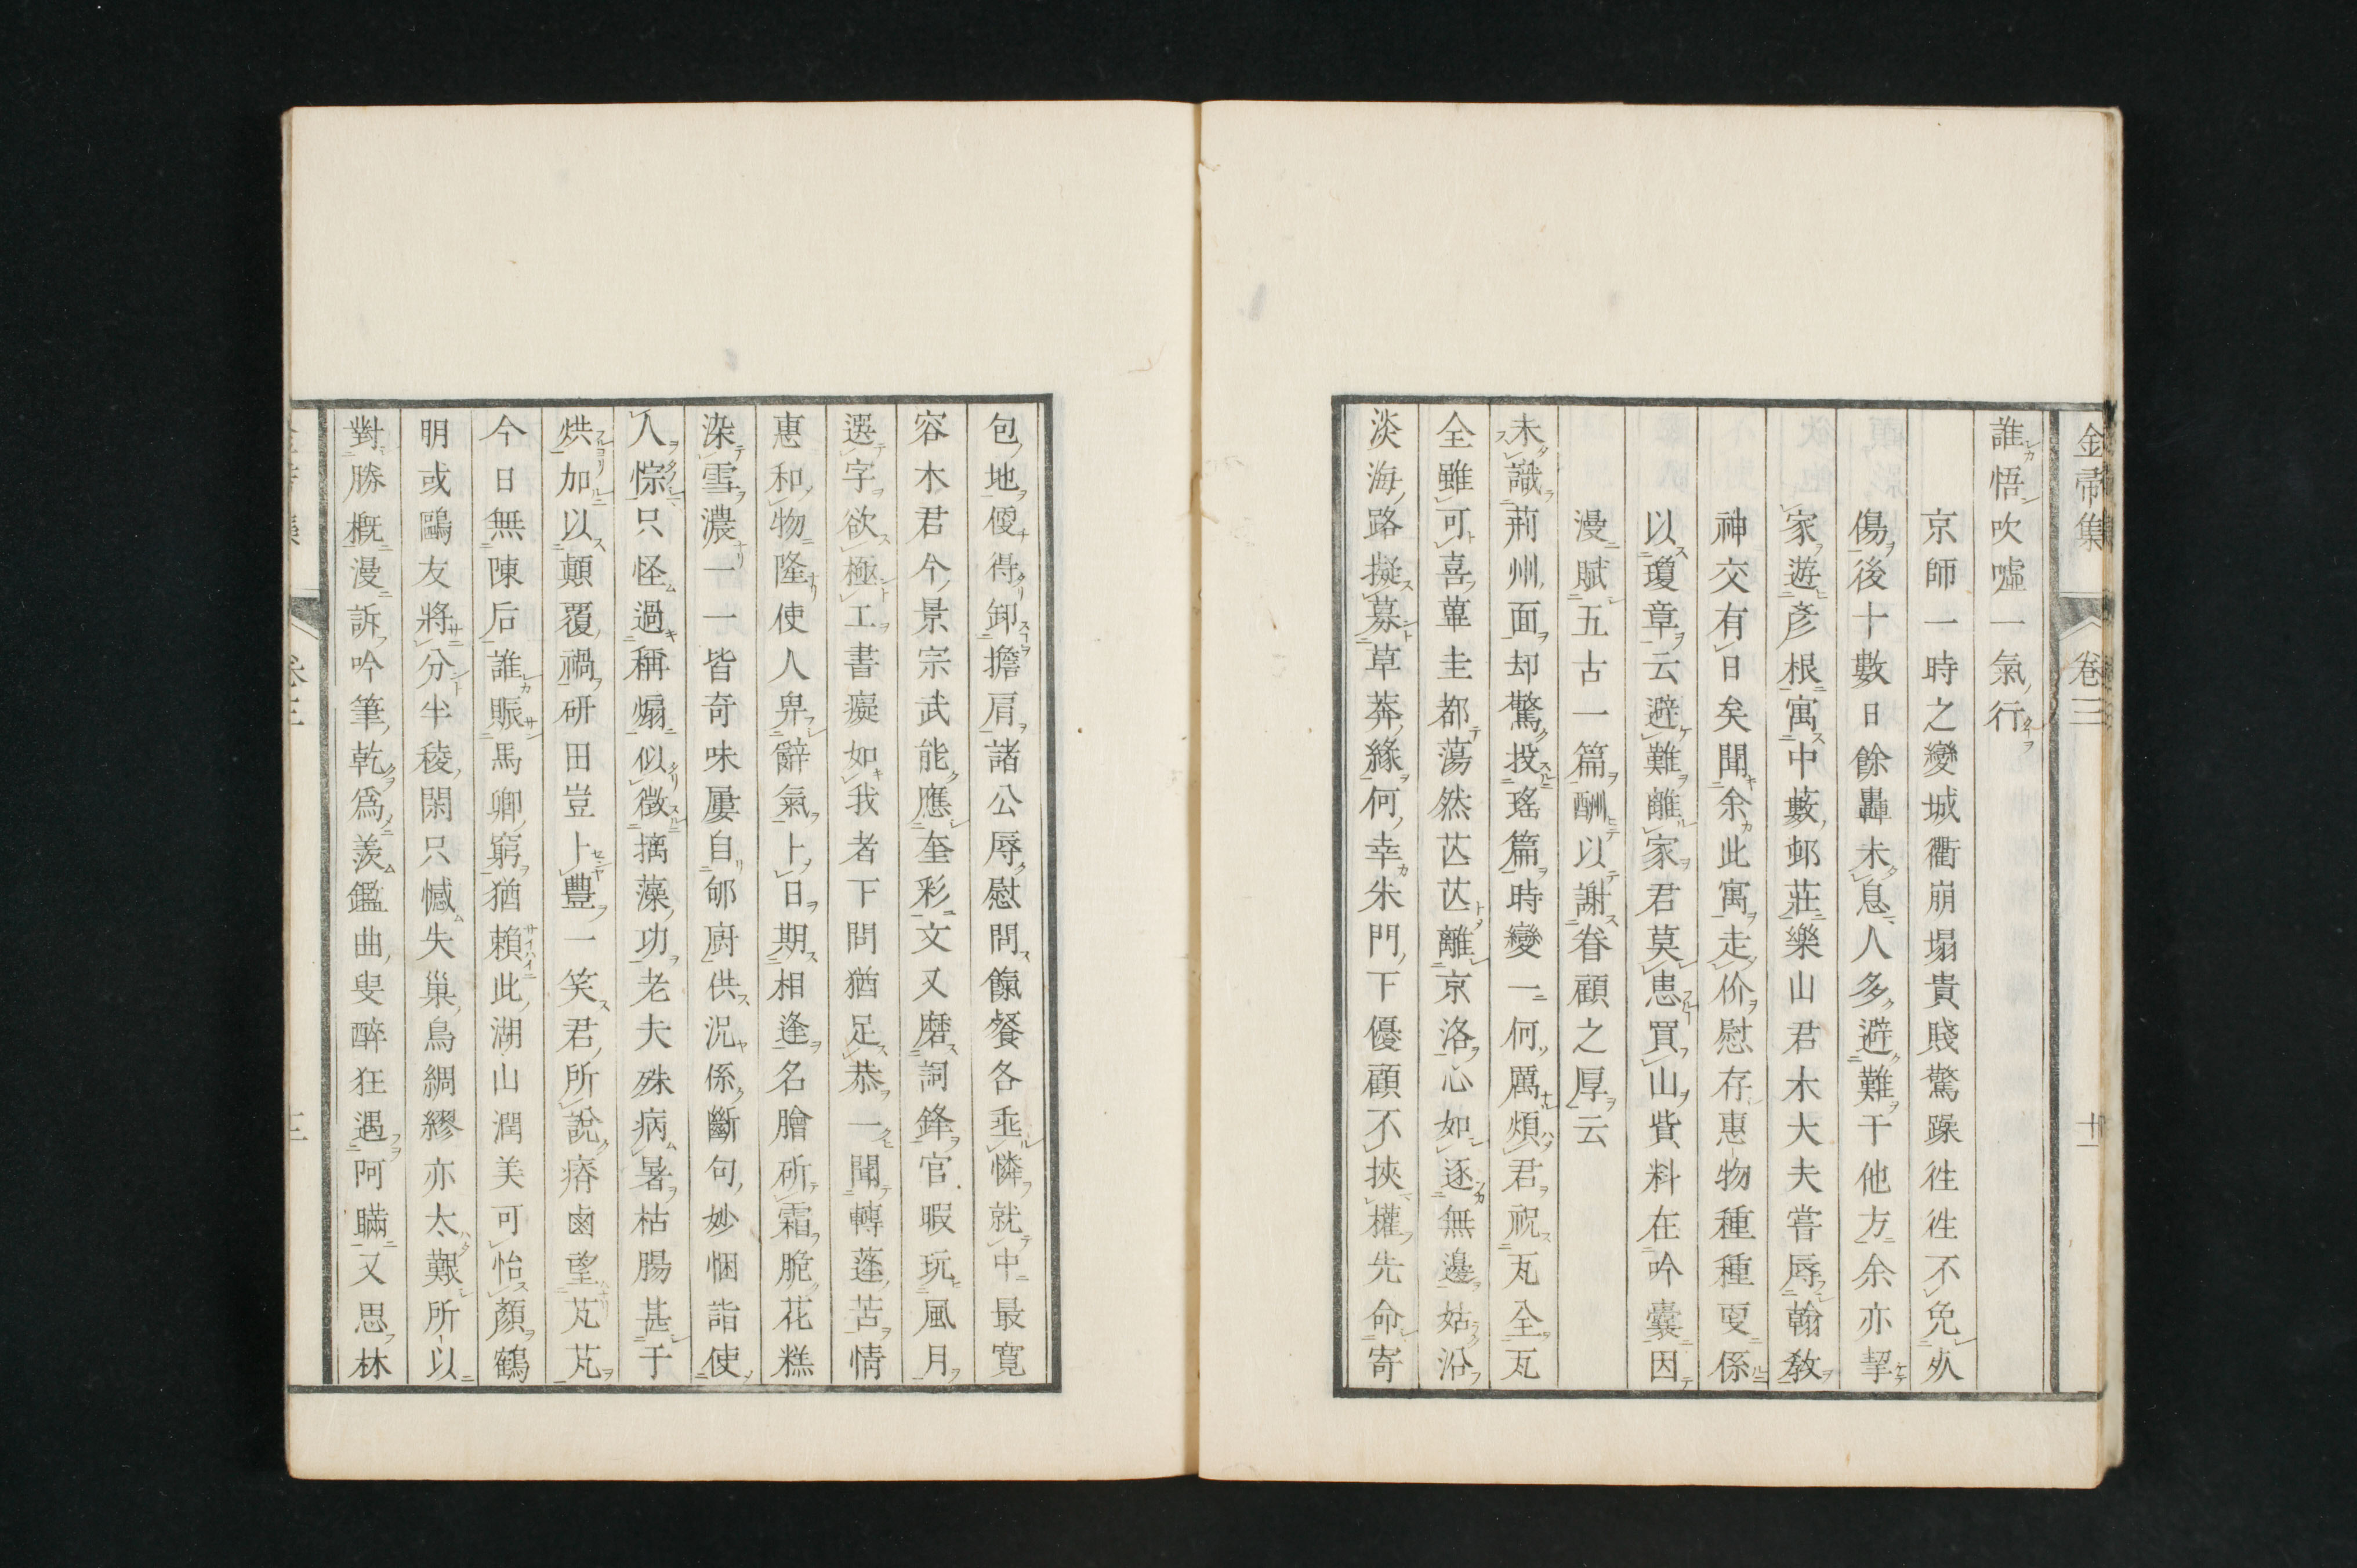 金帚集 卷三 十一
誰悟吹噓一氣行
京師一時之變城衢崩塌貴賤驚躁徃徃不免夾
傷後十數日餘轟未息人多避難于他方余亦挈
家遊彥根寓中藪邨莊樂山君木大夫嘗辱翰教
神交有日矣聞余此寓走价慰存惠物種種更係
以瓊章云避難離家君莫患買山貲料在吟囊因
漫賦五古一篇酬以謝眷顧之厚云
未識荊州面却驚投瑤篇時變一何厲煩君祝瓦全瓦
全雖可喜蓽圭都蕩然苉苉離京洛心如逐無邊姑沿
淡海路擬募草莽緣何幸朱門下優顧不挾權先命寄
包地優得卸擔肩諸公辱慰問餼餐各垂憐就中最寬
容木君今景宗武能應奎彩文又磨詞鋒官暇玩風月
選字欲極工書癡如我者下問猶足恭一聞轉蓬苦情
惠和物隆使人畀辭氣上日期相逢名膾斫霜脆花糕
染雪濃一一皆奇味屢自郇廚供況係斷句妙悃詣使
人悰只怪過稱煽似徵摛藻功老夫殊病暑枯腸甚于
烘加以顛覆禍研田豈卜豐一笑君所說瘠鹵望芃芃
今日無陳后誰賑馬卿窮猶賴此湖山潤美可怡顏鶴
明或鷗友將分半稜閑只憾失巢鳥綢繆亦太艱所以
對勝概漫訴吟筆乾爲羨鑑曲叟醉狂遇阿瞞又思林